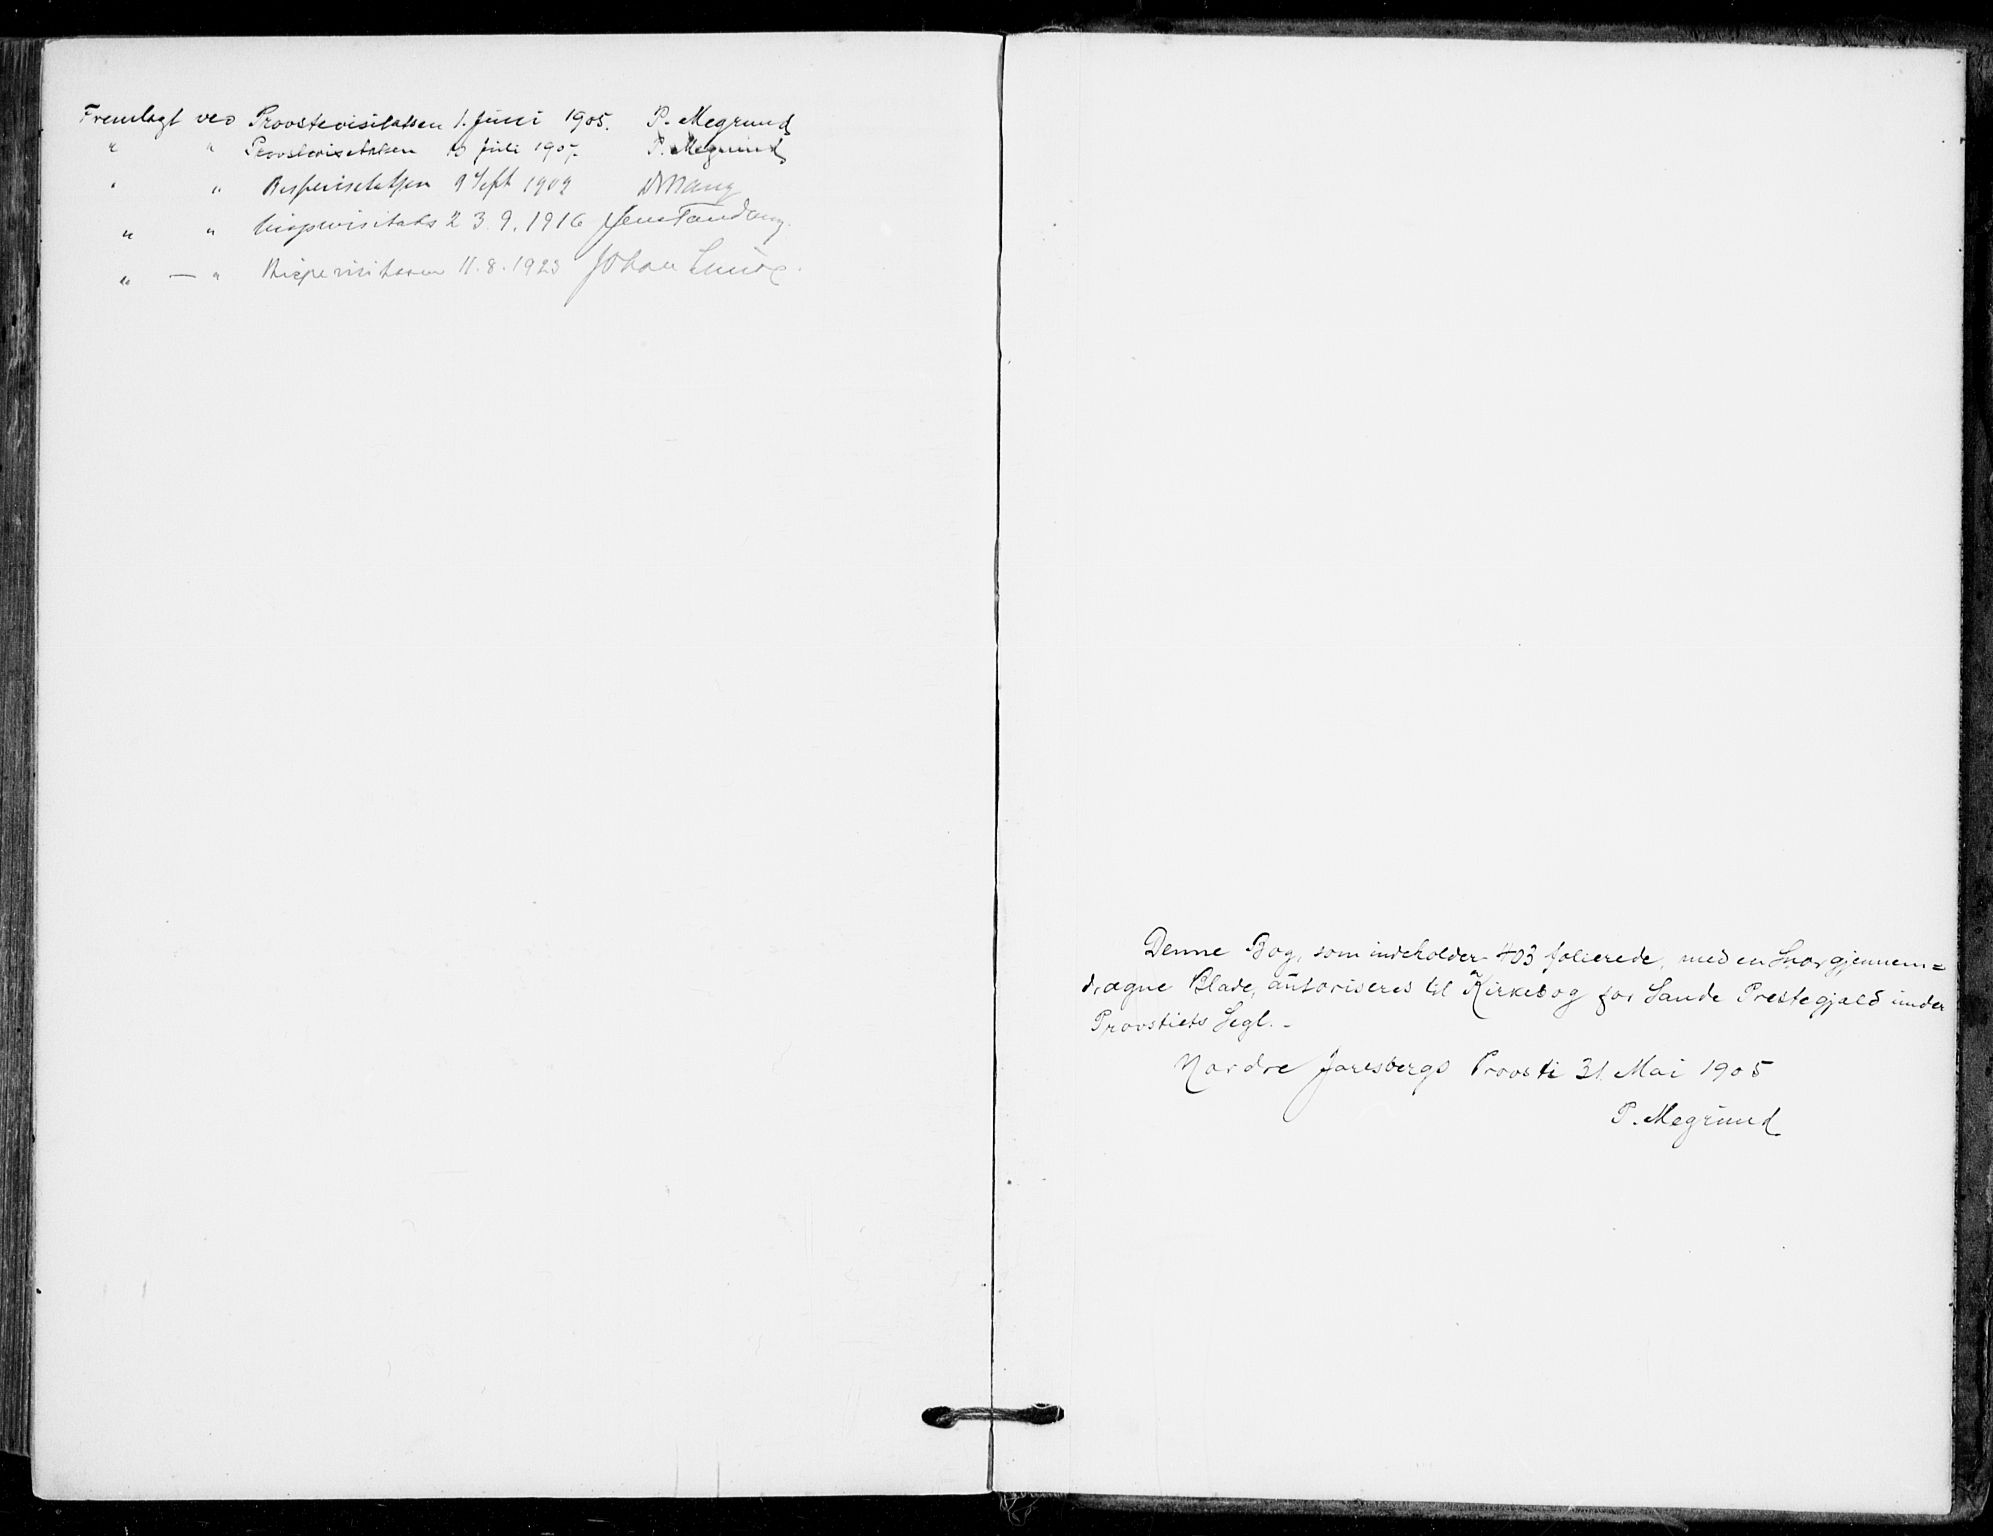 Fremlagt ved Provstevisitatsen 1. Juni 1905. P. Megrund
" " Provstevisitatsen 10 Juli 1907. P. Megrund
" " Bispevisitatsen 9 Sept 1909
" " bispevisitats 3. 9. 1916 Jens Tandberg
" — " Bispevisitasen 11. 8. 1923 Johan Lunde.
Denne Bog, som indeholder 403 folierede, med en Snor gjennem=
dragne Blade, autoriseres til Kirkebog for Sande Prestegjeld under
Provstiets Segl. -
Nordre Jarlsbergs Provsti 31. Mai 1905
P. Megrund